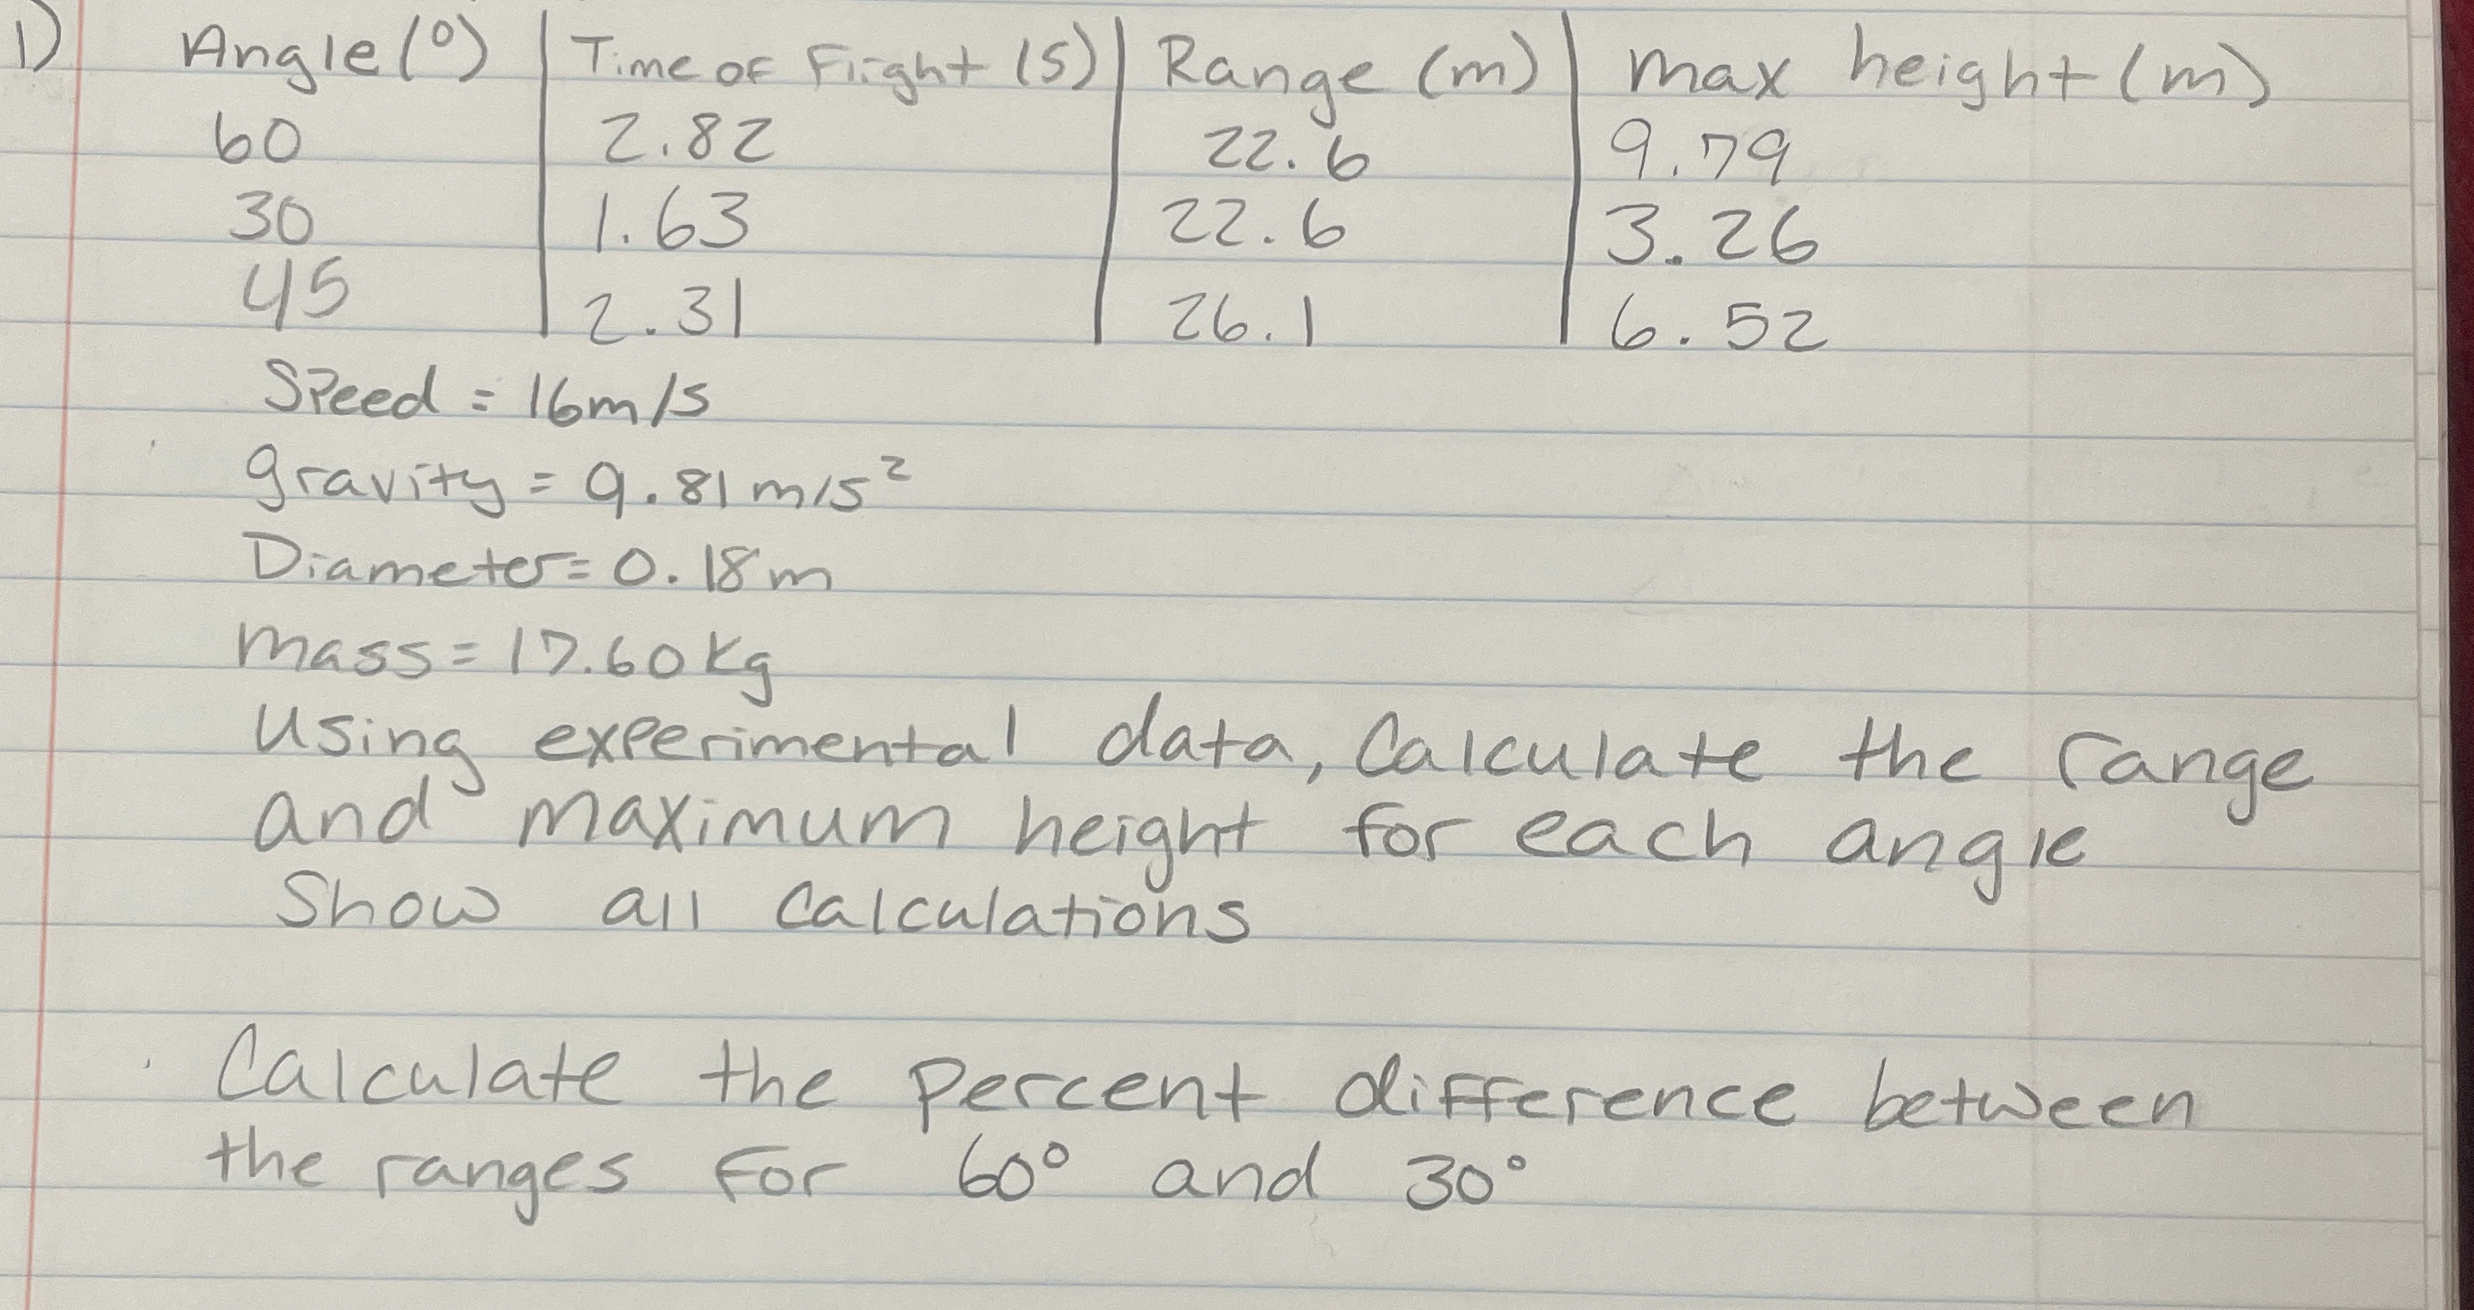 1) Angle (°) | Time of Flight (s) | Range (m) | max height (m)
60 | 2.82 | 22.6 | 9.79
30 | 1.63 | 22.6 | 3.26
45 | 2.31 | 26.1 | 6.52
Speed = 16m/s
gravity = 9.81 m/s²
Diameter = 0.18m
mass = 17.60 kg
Using experimental data, Calculate the range
and maximum height for each angle
Show all calculations
Calculate the percent difference between
the ranges for 60° and 30°